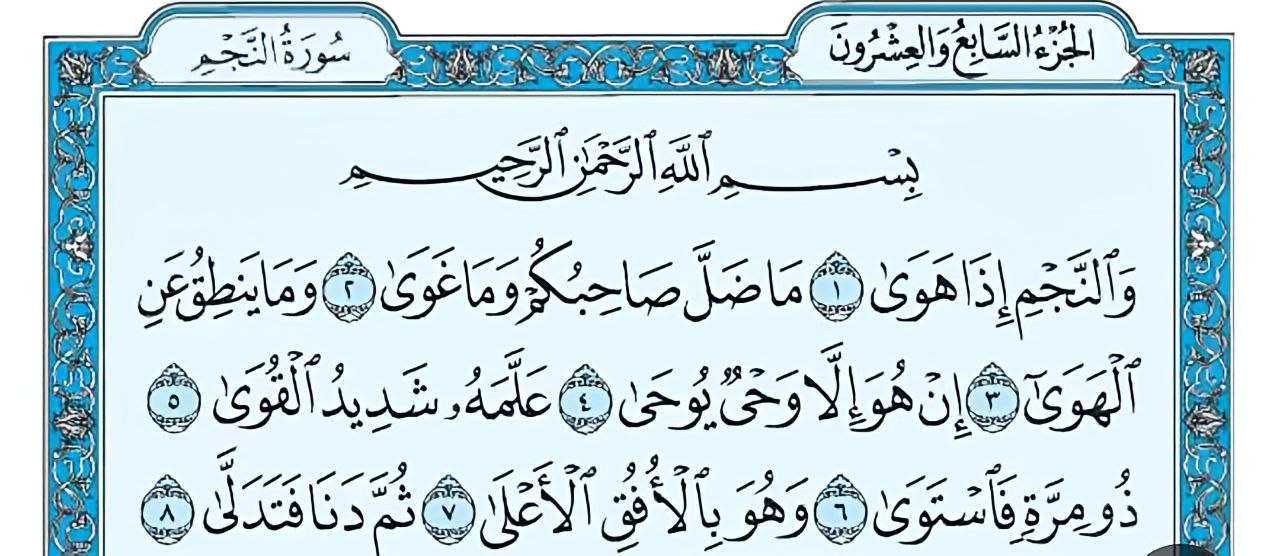 الجُزْءُ السَّابِعُ وَالعِشْرُونَ
سُورَةُ النَّجْمِ
بِسْمِ ٱللَّهِ ٱلرَّحْمَٰنِ ٱلرَّحِيمِ
وَٱلنَّجْمِ إِذَا هَوَىٰ ١ مَا ضَلَّ صَاحِبُكُمْ وَمَا غَوَىٰ ٢ وَمَا يَنطِقُ عَنِ
ٱلْهَوَىٰٓ ٣ إِنْ هُوَ إِلَّا وَحْىٌ يُوحَىٰ ٤ عَلَّمَهُۥ شَدِيدُ ٱلْقُوَىٰ ٥
ذُو مِرَّةٍ فَٱسْتَوَىٰ ٦ وَهُوَ بِٱلْأُفُقِ ٱلْأَعْلَىٰ ٧ ثُمَّ دَنَا فَتَدَلَّىٰ ٨